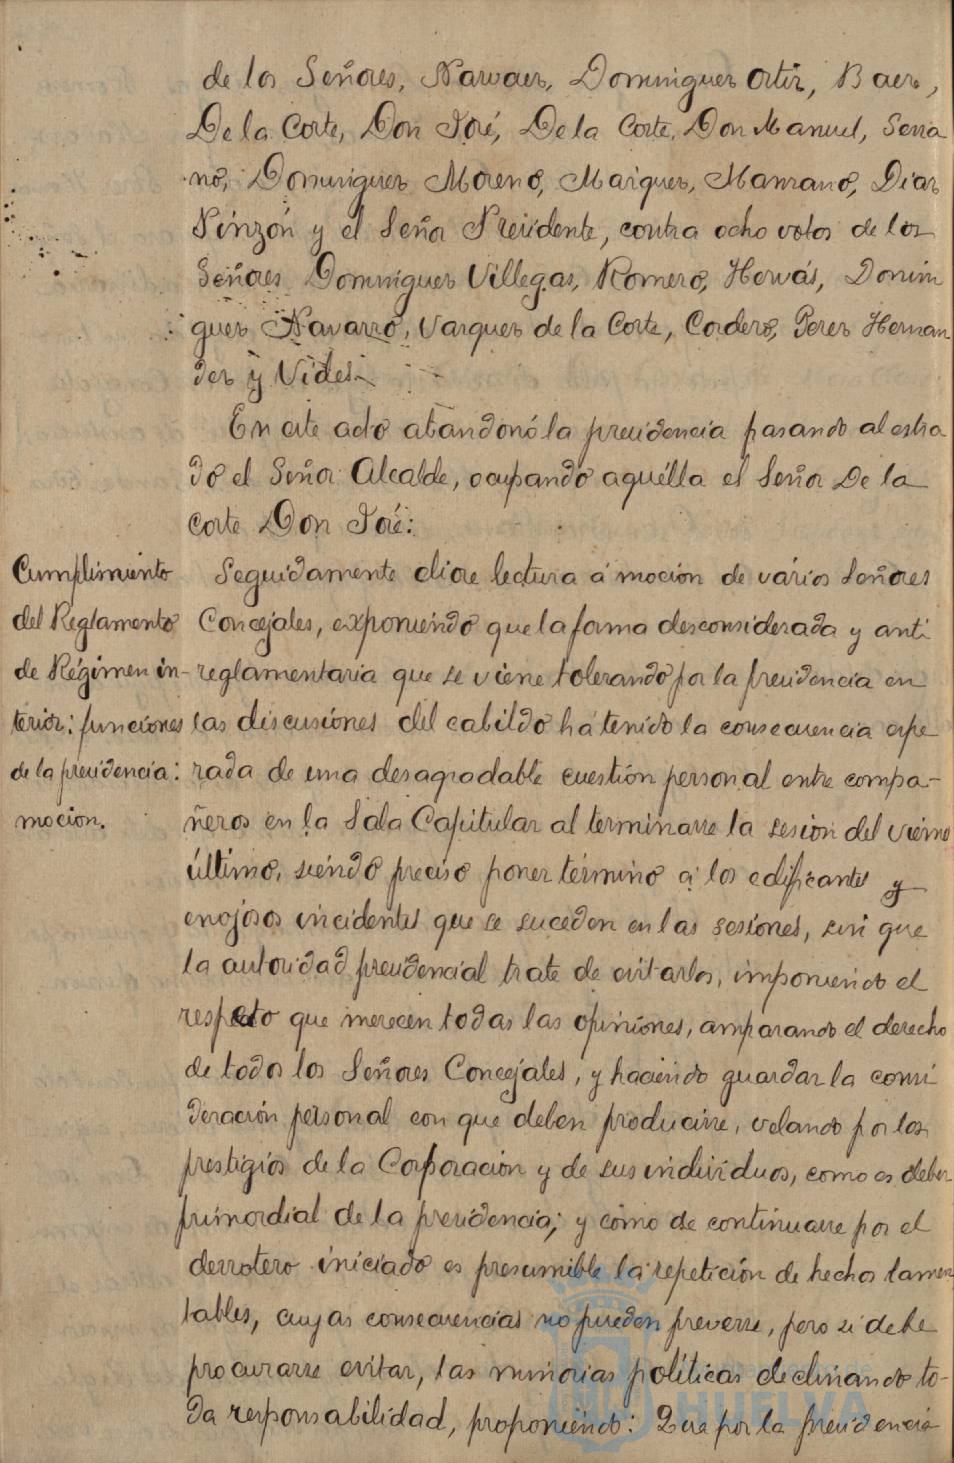 de los Señores, Narvaez, Dominguez Ortiz, Baez,
De la Corte, Don José, De la Corte, Don Manuel, Serra
no, Dominguez Moreno, Marquez, Manzano, Diaz
Pinzón y el Señor Presidente, contra ocho votos de los
Señores Dominguez Villegas, Romero, Hervás, Domin
guez Navarro, Vazquez de la Corte, Cordero, Perez Hernan
dez y Vides.
En este acto abandonó la presidencia pasando al estra
do el Señor Alcalde, ocupando aquélla el Señor De la
Corte Don José:
Cumplimiento
del Reglamento
de Régimen in-
terior: funciones
de la presidencia:
moción.
Seguidamente dióse lectura á moción de varios Señores
Concejales, exponiendo que la forma desconsiderada y anti
reglamentaria que se viene tolerando por la presidencia en
las discusiones del cabildo há tenido la consecuencia espe
rada de una desagradable cuestión personal entre compa-
ñeros en la Sala Capitular al terminarse la sesión del viernes
último, siendo preciso poner término á los edificantes y
enojosos incidentes que se suceden en las sesiones, sin que
la autoridad presidencial trate de evitarlos, imponiendo el
respeto que merecen todas las opiniones, amparando el derecho
de todos los Señores Concejales, y haciendo guardar la consi
deración personal con que deben producirse, velando por los
prestigios de la Corporación y de sus individuos, como es deber
primordial de la presidencia; y como de continuarse por el
derrotero iniciado es presumible la repetición de hechos lamen
tables, cuyas consecuencias no pueden preverse, pero sí debe
procurarse evitar, las minorias políticas declinando to-
da responsabilidad, proponiendo: Que por la presidencia
HUELVA